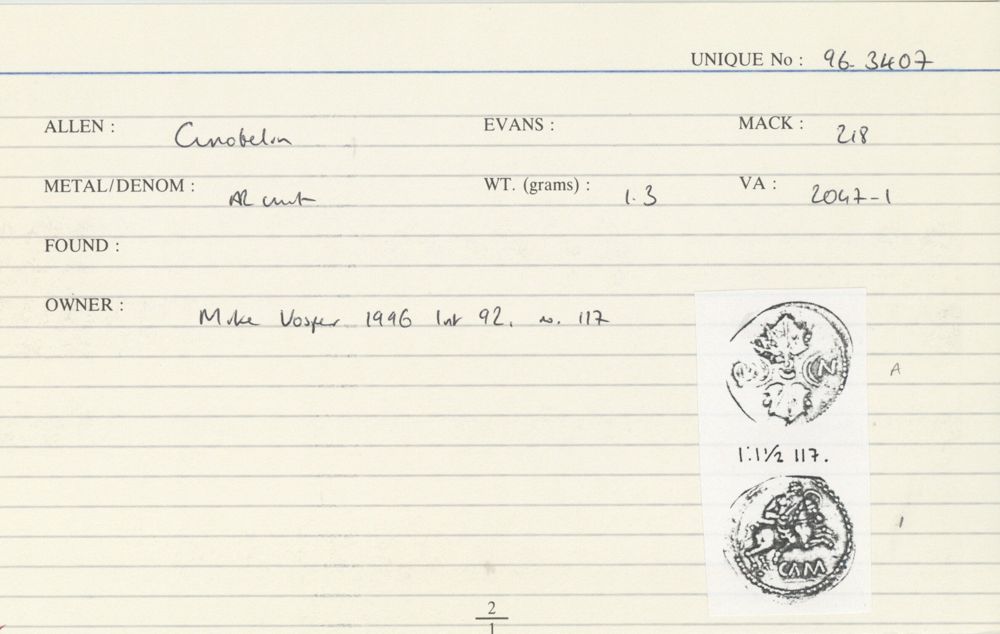 UNIQUE No : 96-3407
ALLEN : Cunobelin EVANS : MACK : 218
METAL/DENOM : AR unit WT. (grams) : 1.3 VA : 2047-1
FOUND :
OWNER : Mike Vosper 1996 list 92, no. 117
N
A
1:1½ 117.
CAM
1
2
1